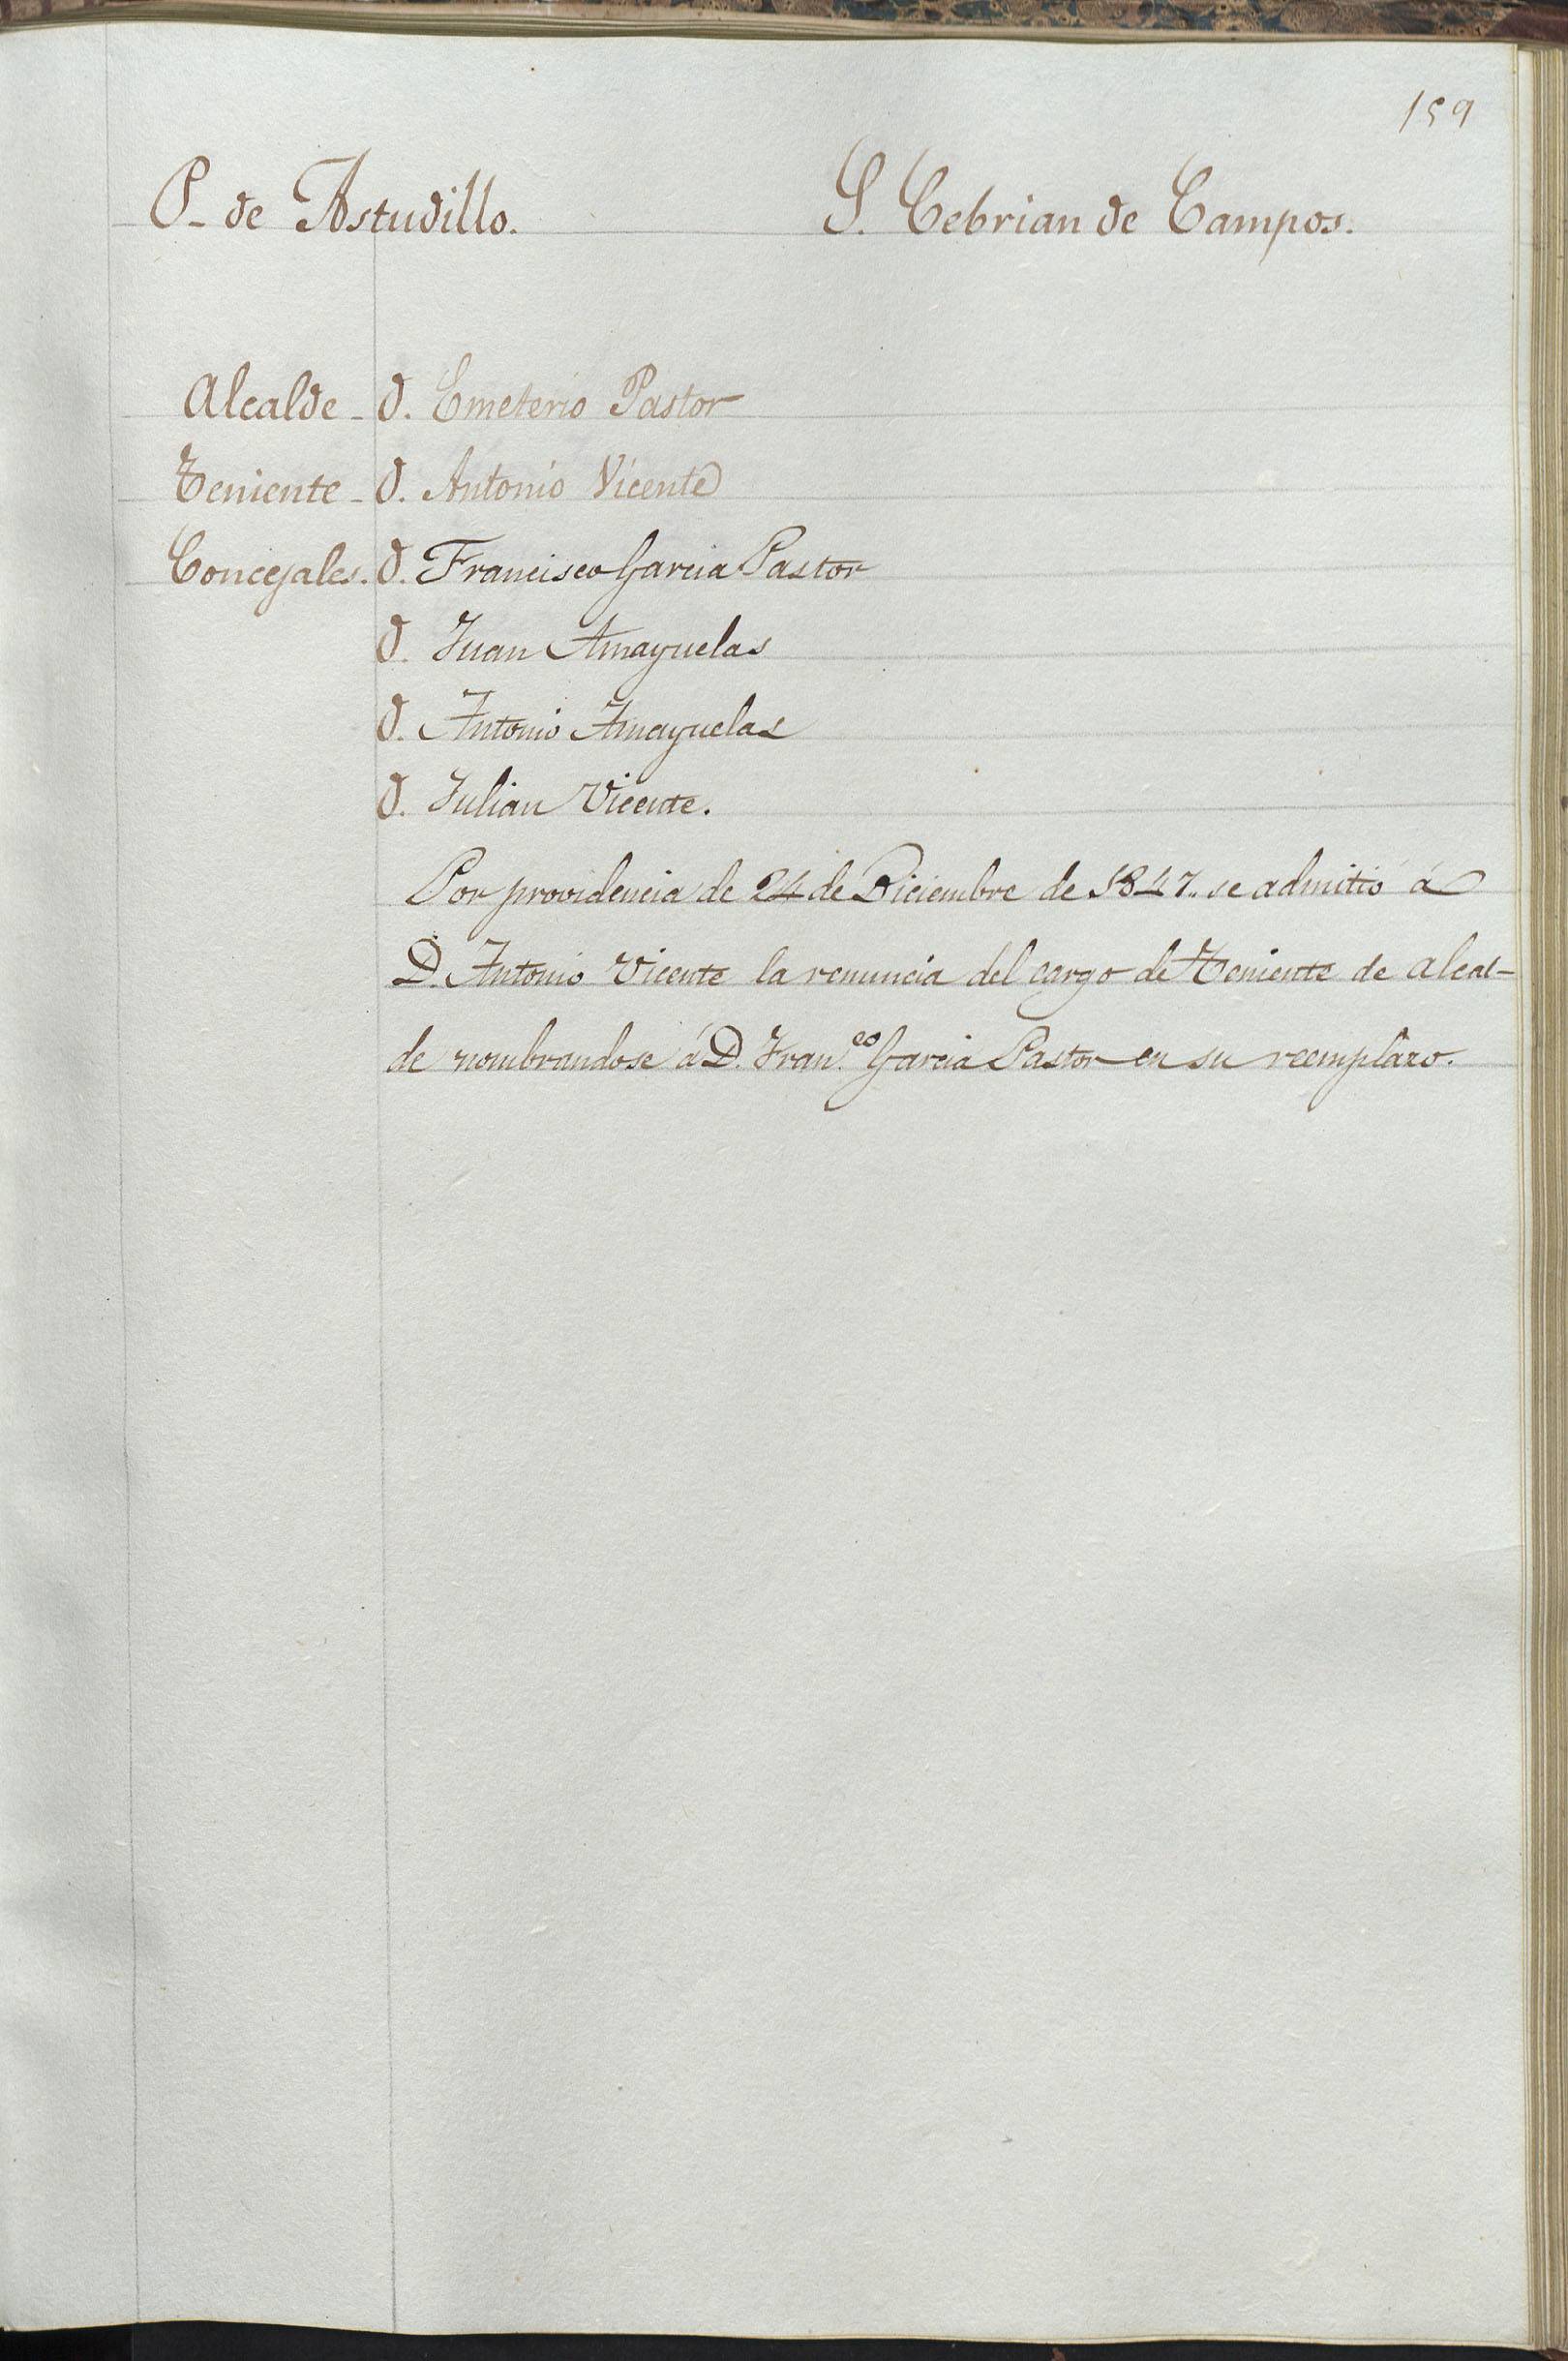 159
P. de Astudillo. S. Cebrian de Campos.
Alcalde - D. Emeterio Pastor
Teniente - D. Antonio Vicente
Concejales. D. Francisco Garcia Pastor
D. Juan Amayuelas
D. Antonio Amayuelas
D. Julian Vicente.
Por providencia de 24 de Diciembre de 1847. se admitió á
D. Antonio Vicente la renuncia del cargo de Teniente de alcal-
de nombrandose á D. Fran.co Garcia Pastor en su reemplazo.